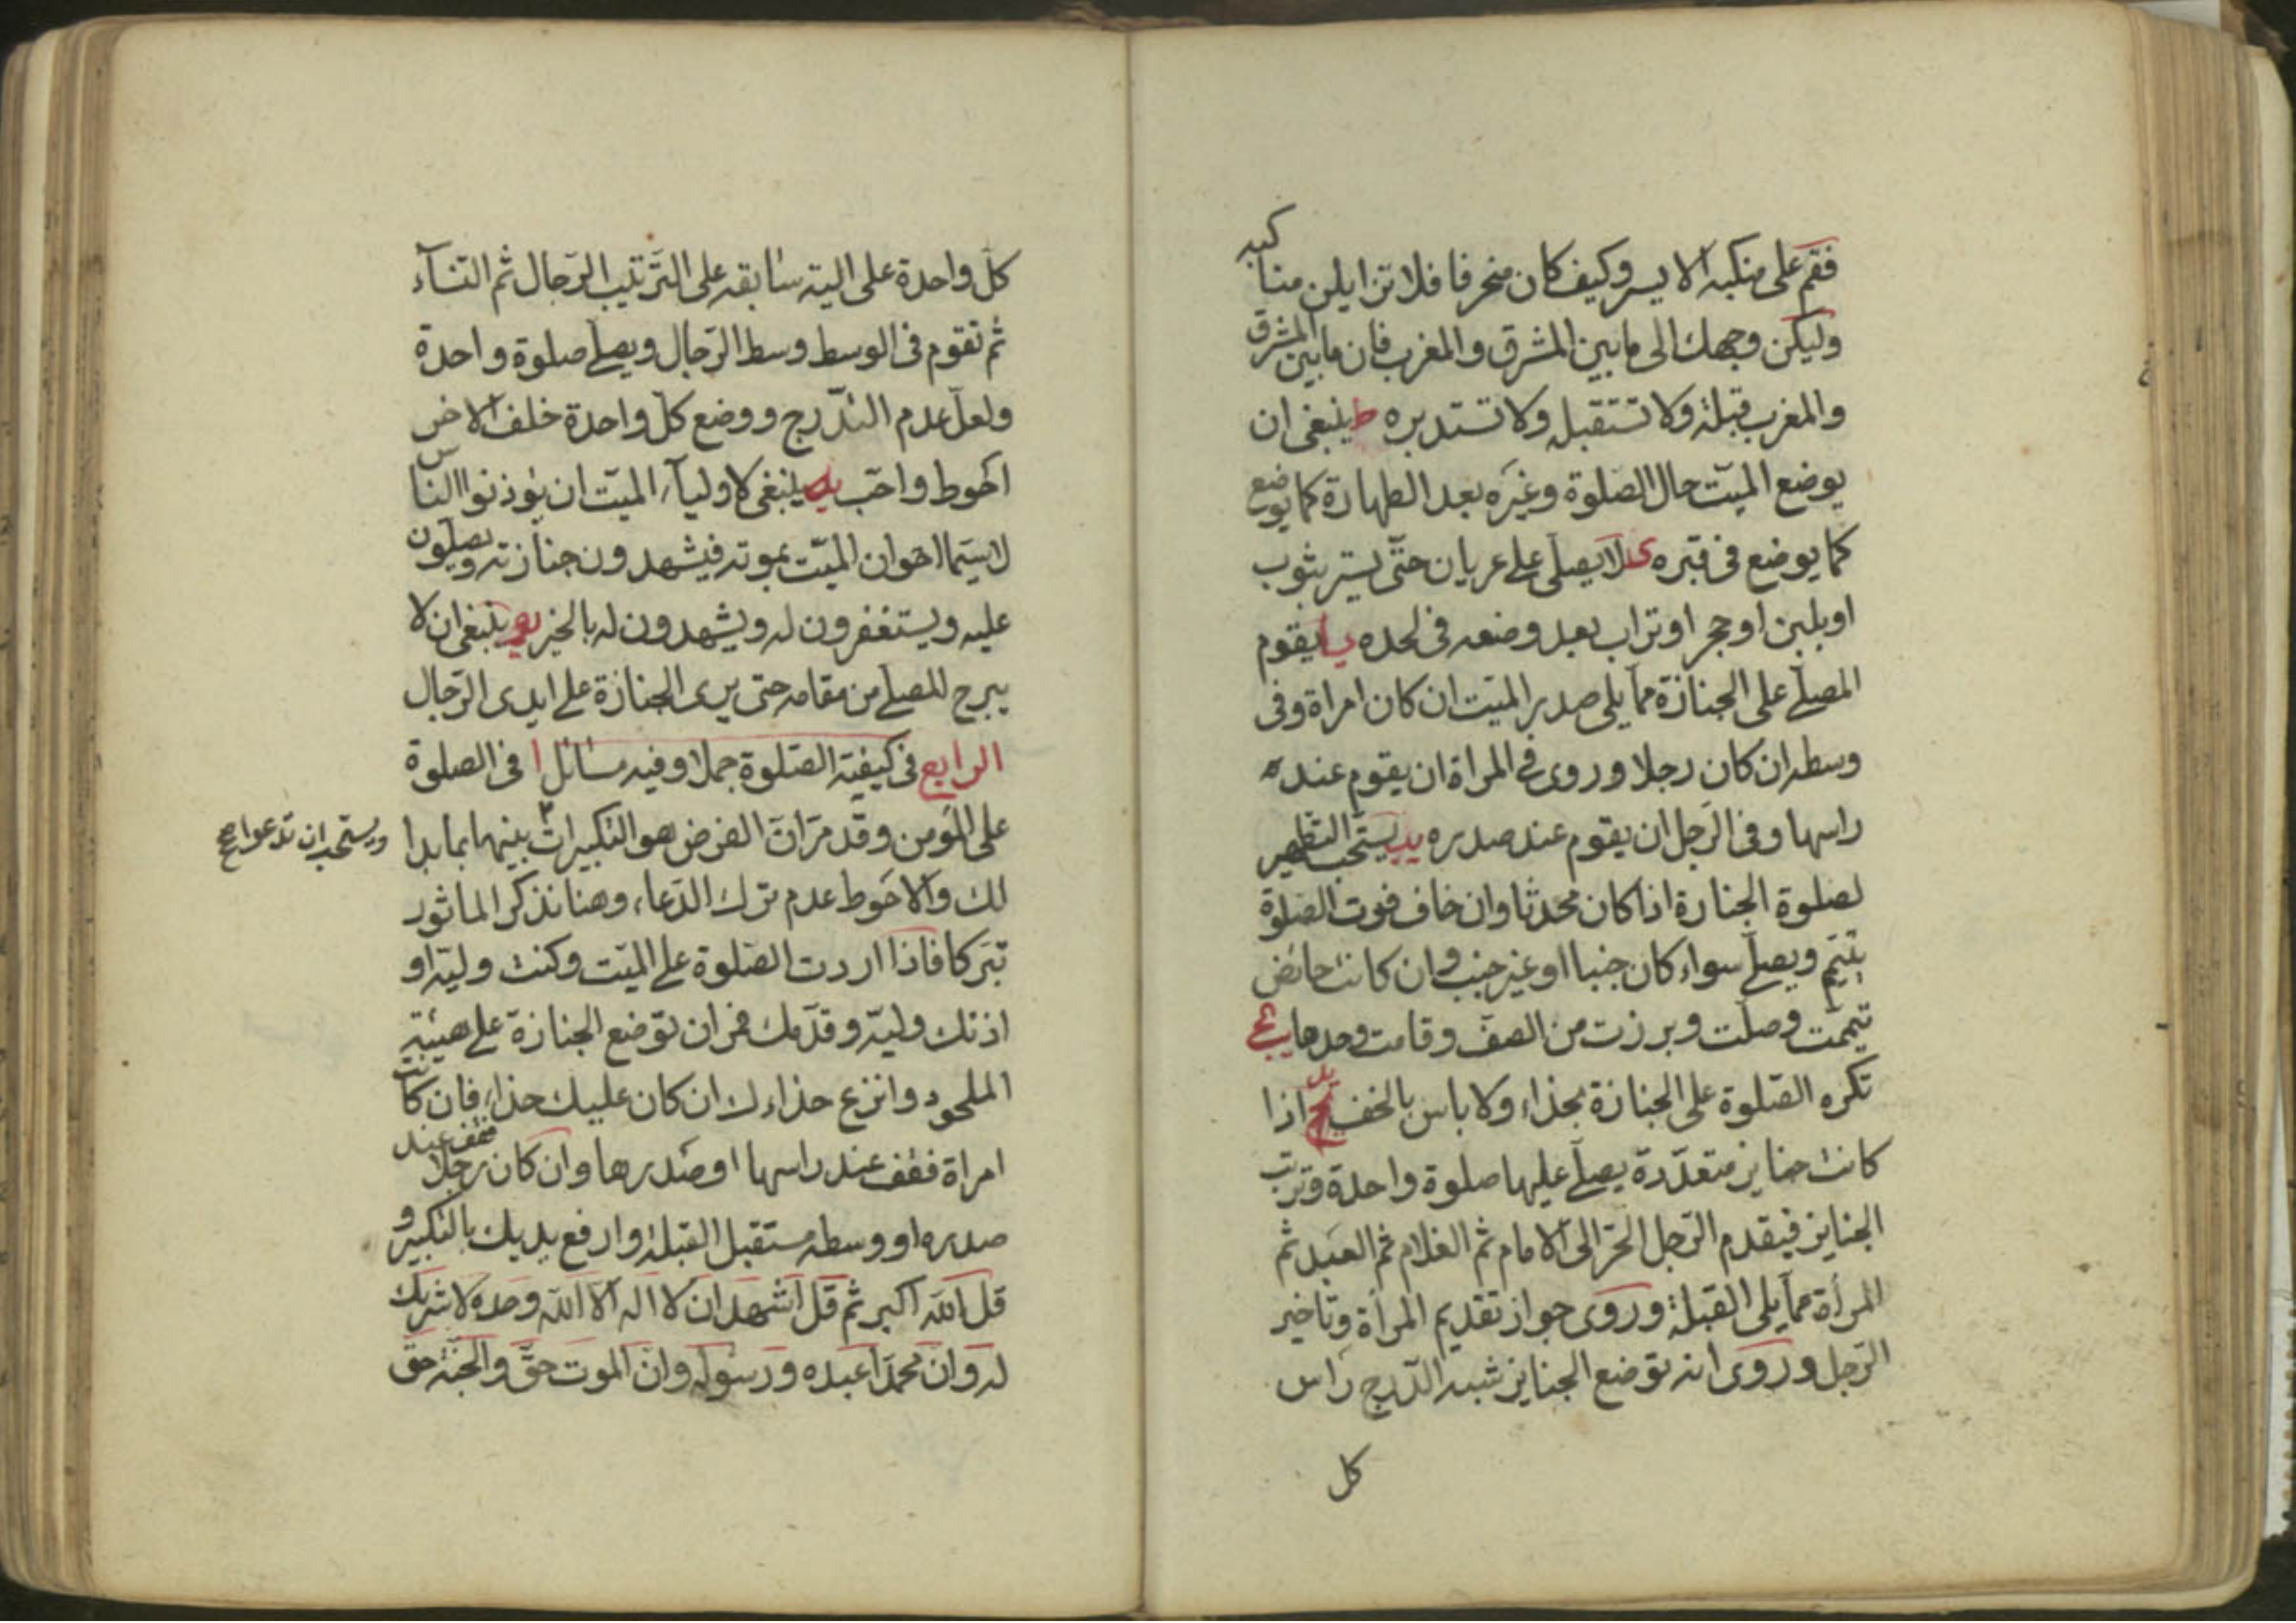 فقم على منكبه الايسر وكيف كان منحرفا فلا تزايلن مناكبه
وليكن وجهك الى مابين المشرق والمغرب فان مابين المشرق
والمغرب قبلة ولا تستقبله ولا تستدبره ط ينبغى ان
يوضع الميّت حال الصّلوة وغيره بعد الطهارة كما يوضع
كما يوضع فى قبره ى لا يصلى على عريان حتّى يستر بثوب
او بلبن او حجر او تراب بعد وضعه فى لحده يا يقوم
المصلّے على الجنازة ممّا يلى صدر الميّت ان كان امراة وفى
وسطه ان كان رجلا وروى فى المراة ان يقوم عند
راسها وفى الرّجل ان يقوم عند صدره يب يستحّب التطهير
لصلوة الجنازة اذا كان محدثا وان خاف فوت الصّلوة
يتيمّم ويصلّے سواء كان جنبا او غير جنب وان كانت حائض
تيمّمت وصلّت وبرزت من الصفّ وقامت وحدها يج
تكره الصّلوة على الجنازة بحذاء ولا باس بالخف يد اذا
كانت جنايز متعدّدة يصلّے عليها صلوة واحدة وترتب
الجنايز فيقدم الرّجل الحرّ الى الامام ثم الغلام ثم العبد ثم
المرأة ممّا يلى القبلة وروى جواز تقديم المرأة وتاخير
الرّجل وروى انه توضع الجنايز شبه الدّرج راس
كل
كلّ واحدة على الية سابقه على التّرتيب الرّجال ثم النّسآء
ثم تقوم فى الوسط وسط الرّجال ويصلّے صلوة واحدة
ولعلّ عدم التدّرج ووضع كلّ واحدة خلف الاخرى
احوط واحّب يه ينبغى لاوليآء الميّت ان يوذنوا الناس
لاسيّما اخوان الميّت بموته فيشهدون جنازته ويصلون
عليه ويستغفرون له ويشهدون له بالخير يو ينبغى ان لا
يبرح المصلّے من مقامه حتى يرى الجنازة على ايدى الرّجال
الرابع فى كيفيّة الصّلوة جملا وفيه مسائل ا فى الصلوة
على المؤمن وقد مرّ انّ الفرض هو التكبيرات بينهما بما بدا
ويستحب ان تدعوا
لك والاحوط عدم ترك الدّعاء وهنا نذكر الماثور
تبّركا فاذا اردت الصّلوة على الميّت وكنت وليّه او
اذنك وليّه وقدّمك فمر ان توضع الجنازة على هيئة
الملحود وانزع حذاءك ان كان عليك حذاء فان كانت
امراة فقف عند راسها او صدرها وان كان رجلا فقف عند
صدره او وسطه مستقبل القبلة وارفع يديك بالتكبير و
قل اللّه اكبر ثم قل اشهد ان لا اله الّا اللّه وحده لا شريك
له وانّ محمّدا عبده ورسوله وانّ الموت حقّ والجنّة حقّ